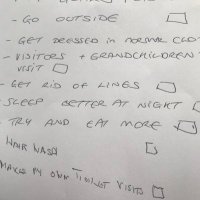 - GO OUTSIDE
- GET DRESSED IN NORMAL CLO
- VISITORS + GRANDCHILDREN
VISIT
- GET RID OF LINES
- SLEEP BETTER AT NIGHT
- TRY AND EAT MORE
HAIR WASH
MAKES MY OWN TOILET VISITS